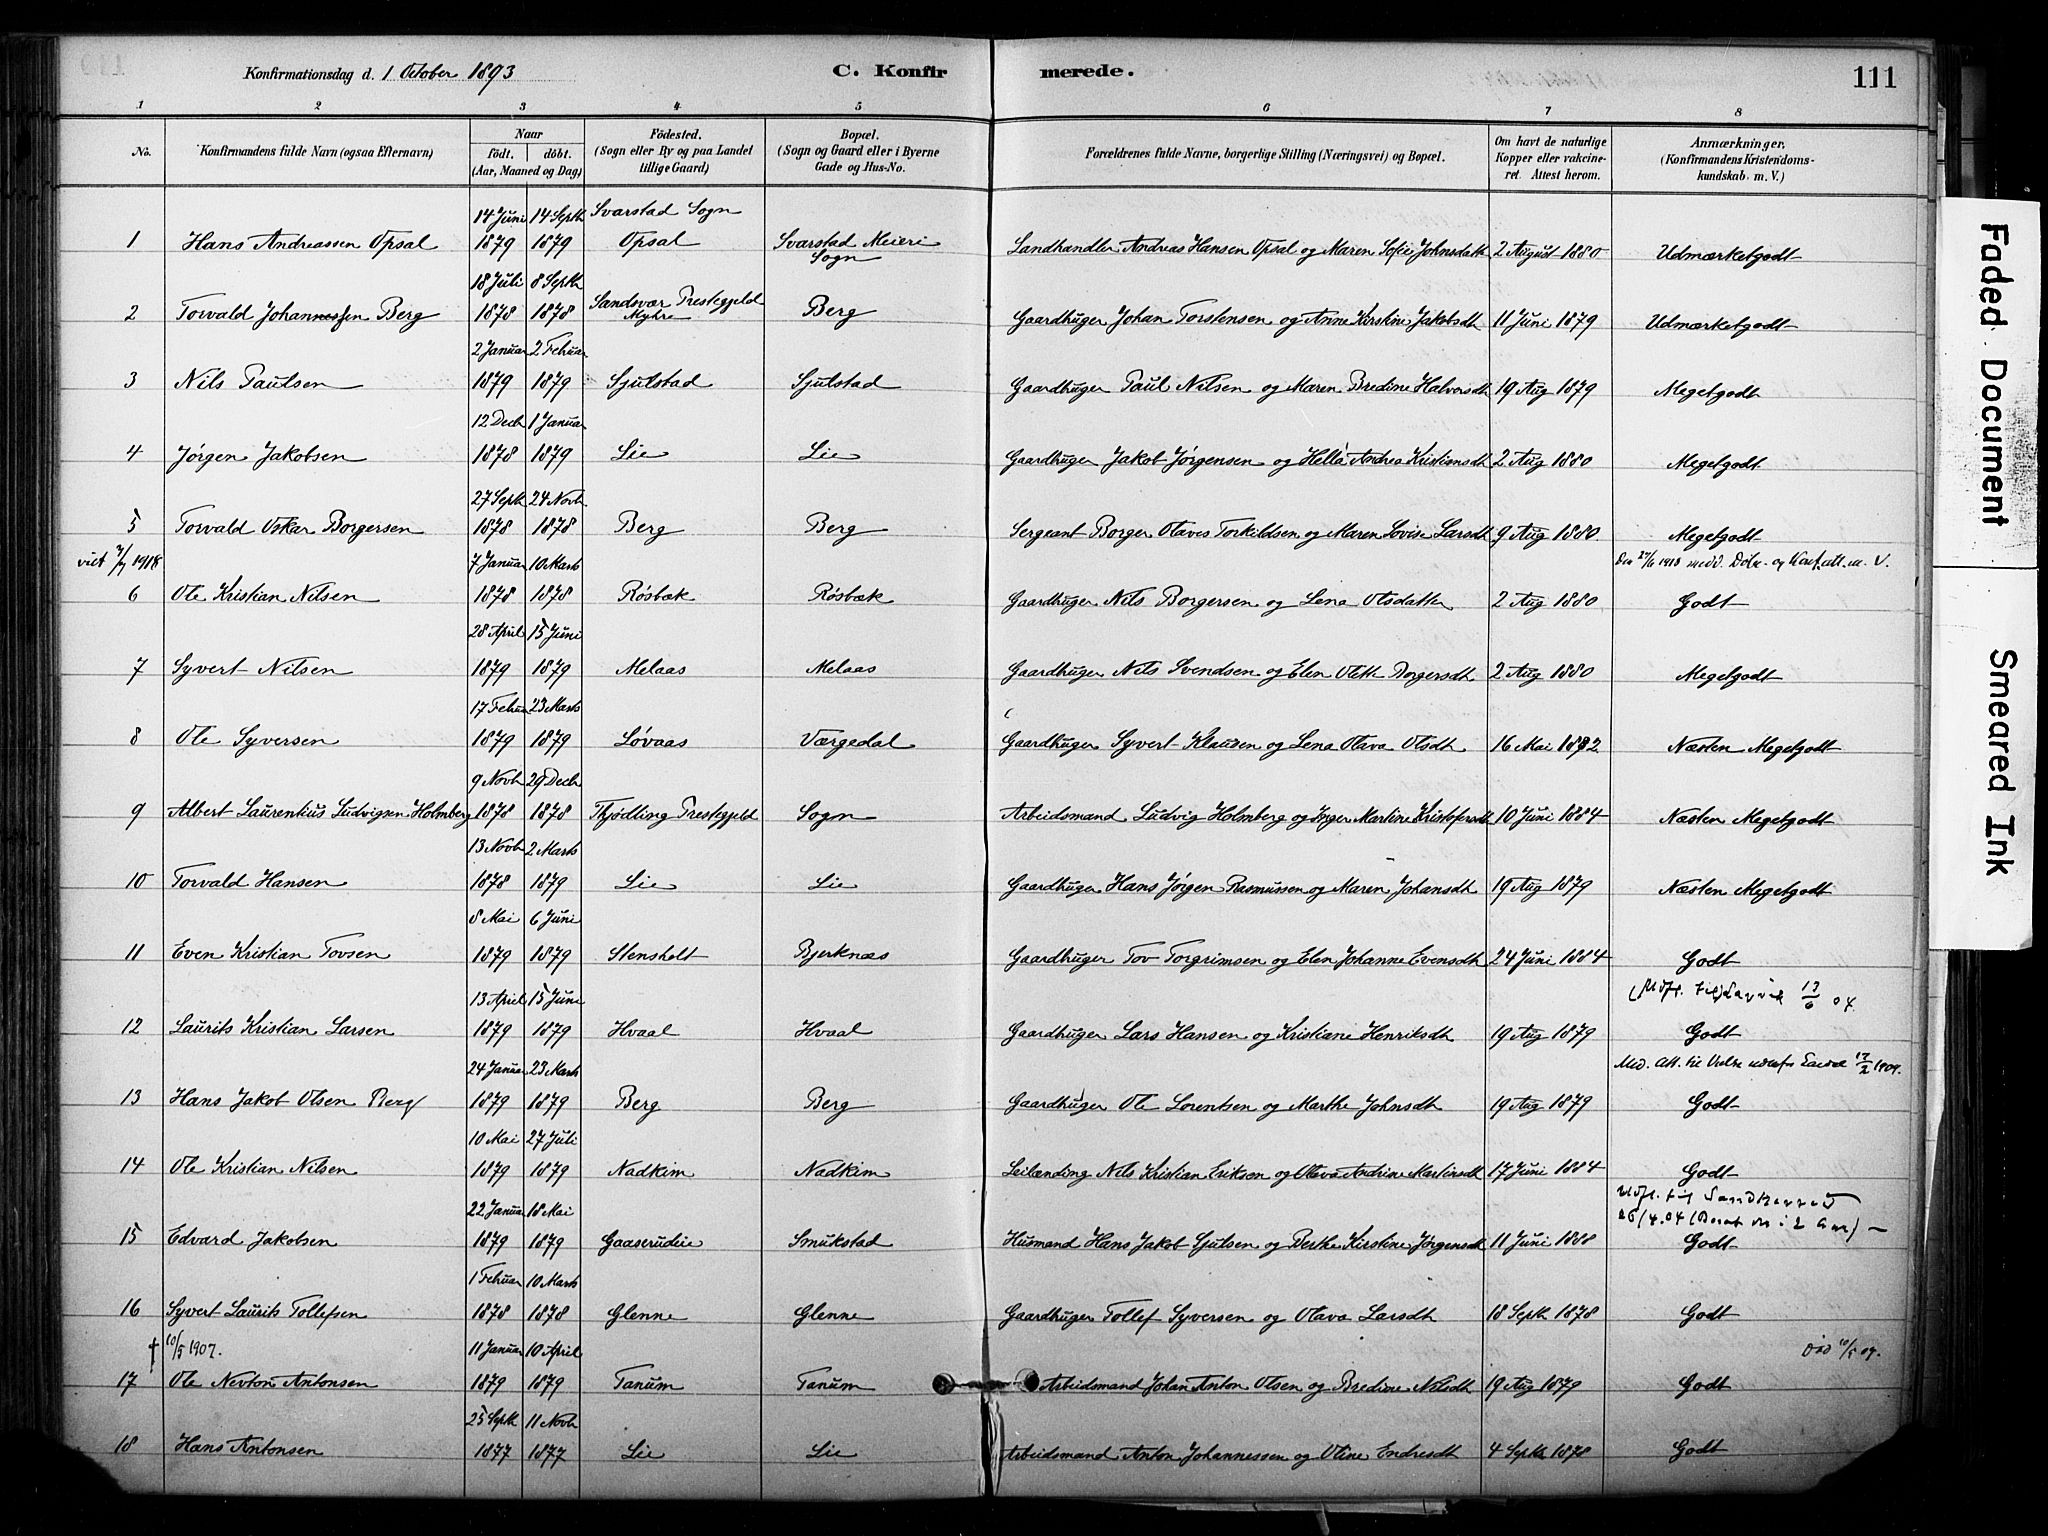 Konfirmationsdag d. 1 October 1893
C. Konfirmerede.
111
1 2 3 4 5 6 7 8
No.
Konfirmandens fulde Navn (ogsaa Efternavn)
Naar
födt. döbt.
(Aar, Maaned og Dag)
Födested.
(Sogn eller By og paa Landet
tillige Gaard)
Bopæl.
(Sogn og Gaard eller i Byerne
Gade og Hus-No.
Forældrenes fulde Navne, borgerlige Stilling (Næringsvei) og Bopæl.
Om havt de naturlige
Kopper eller vakcine-
ret. Attest herom.
Anmærkninger,
(Konfirmandens Kristendoms-
kundskab m. V.)
14 Juni 14 Septb Svarstad Sogn
1 Hans Andreassen Opsal 1879 1879 Opsal Svarstad Meieri Landhandler Andreas Hansen Opsal og Maren Sofie Johnsdatt 2 August 1880 Udmærketgodt
Sogn
18 Juli 8 Septb
2 Torvald Johannessen Berg 1878 1878 Sandsvær Prestegjeld Myhre Berg Gaardbruger Johan Torstensen og Anne Kirstine Jakobsdt 11 Juni 1879 Udmærketgodt
2 Januar 2 Februar
3 Nils Paulsen 1879 1879 Sjulstad Sjulstad Gaardbruger Paul Nilsen og Maren Bredine Halvorsdt 19 Aug 1879 Megetgodt
12 Decb 1 Januar
4 Jørgen Jakobsen 1878 1879 Lie Lie Gaardbruger Jakob Jørgensen og Hella Andrea Kristiansdt 2 Aug 1880 Megetgodt
27 Septb 24 Novb
5 Torvald Oskar Borgersen 1878 1878 Berg Berg Sergeant Borger Olaves Torkildsen og Maren Lovise Larsdt 9 Aug 1880 Megetgodt
1918 7 Januar 10 Marts Den 27/6 1918 medd. Døbe- og Konf.att. m. V.
6 Ole Kristian Nilsen 1878 1878 Røsbæk Røsbæk Gaardbruger Nils Borgersen og Lena Olsdatter 2 Aug 1880 Godt
28 April 15 Juni
7 Syvert Nilsen 1879 1879 Melaas Melaas Gaardbruger Nils Svendsen og Elen Olette Borgersdt 2 Aug 1880 Megetgodt
17 Februar 23 Marts
8 Ole Syversen 1879 1879 Løvaas Værgedal Gaardbruger Syvert Klausen og Lena Olava Olsdt 16 Mai 1892 Næsten Megetgodt
9 Novb 29 Decb
9 Albert Laurentius Ludvigsen Holmberg 1878 1878 Thjødling Prestegjeld Sogn Arbeidsmand Ludvig Holmberg og Inger Martine Kristofersdt 10 Juni 1884 Næsten Megetgodt
13 Novb 2 Marts
10 Torvald Hansen 1878 1879 Lie Lie Gaardbruger Hans Jørgen Rasmussen og Maren Johansdt 19 Aug 1879 Næsten Megetgodt
8 Mai 6 Juni
11 Even Kristian Tovsen 1879 1879 Stensholt Bjerknæs Gaardbruger Tov Torgrimsen og Elen Johanne Evensdt 24 Juni 1884 Godt
13 April 15 Juni (Udfl. til Larvik 13/6 04.
12 Laurits Kristian Larsen 1879 1879 Hvaal Hvaal Gaardbruger Lars Hansen og Kristiane Henriksdt 19 Aug 1879 Godt
24 Januar 23 Marts Med. Att. til 17/2 1909.
13 Hans Jakob Olsen Berg 1879 1879 Berg Berg Gaardbruger Ole Lorentsen og Marthe Johnsdt 19 Aug 1879 Godt
10 Mai 27 Juli
14 Ole Kristian Nilsen 1879 1879 Nadkim Nadkim Leilænding Nils Kristian Eriksen og Olava Andrine Martinsdt 17 Juni 1884 Godt
22 Januar 18 Mai Udfl. til Sandeherred
26/4.04 (Boet der i 2 Aar)
15 Edvard Jakobsen 1879 1879 Gaaserudeie Smukstad Husmand Hans Jakob Sjulsen og Berthe Kirstine Jørgensdt 11 Juni 1888 Godt
1 Februar 10 Marts
16 Syvert Laurits Tollefsen 1878 1878 Glenne Glenne Gaardbruger Tollef Syversen og Olava Larsdt 18 Septb 1878 Godt
† 10/5 1907. 11 Januar 10 April Død 10/5 07.
17 Ole Nevton Antonsen 1879 1879 Tanum Tanum Arbeidsmand Johan Anton Olsen og Bredine Nilsdt 19 Aug 1879 Godt
25 Septb 11 Novb
18 Hans Antonsen 1877 1877 Lie Lie Arbeidsmand Anton Johannessen og Oline Endresdt 4 Septb 1878 Godt
Faded Document
Smeared Ink